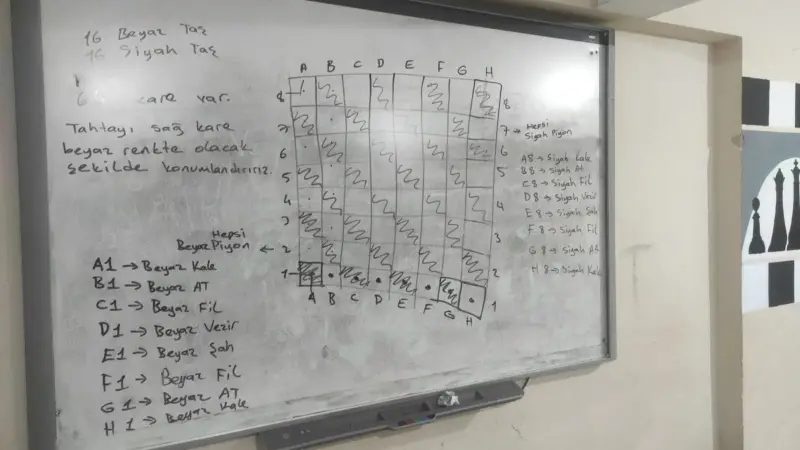 16 Beyaz Taş
16 Siyah Taş
kare var.
Tahtayı sağ kare
beyaz renkte olacak
şekilde konumlandırırız.
Hepsi
Beyaz Piyon ←
A1 → Beyaz Kale
B1 → Beyaz AT
C1 → Beyaz Fil
D1 → Beyaz Vezir
E1 → Beyaz Şah
F1 → Beyaz Fil
G1 → Beyaz AT
H1 → Beyaz Kale
A B C D E F G H
8 8
7 7
6 6
5 5
4 4
3 3
2 2
1 1
A B C D E F G H
→ Hepsi
Siyah Piyon
A8 → Siyah Kale
B8 → Siyah AT
C8 → Siyah Fil
D8 → Siyah Vezir
E8 → Siyah Şah
F8 → Siyah Fil
G8 → Siyah At
H8 → Siyah Kale